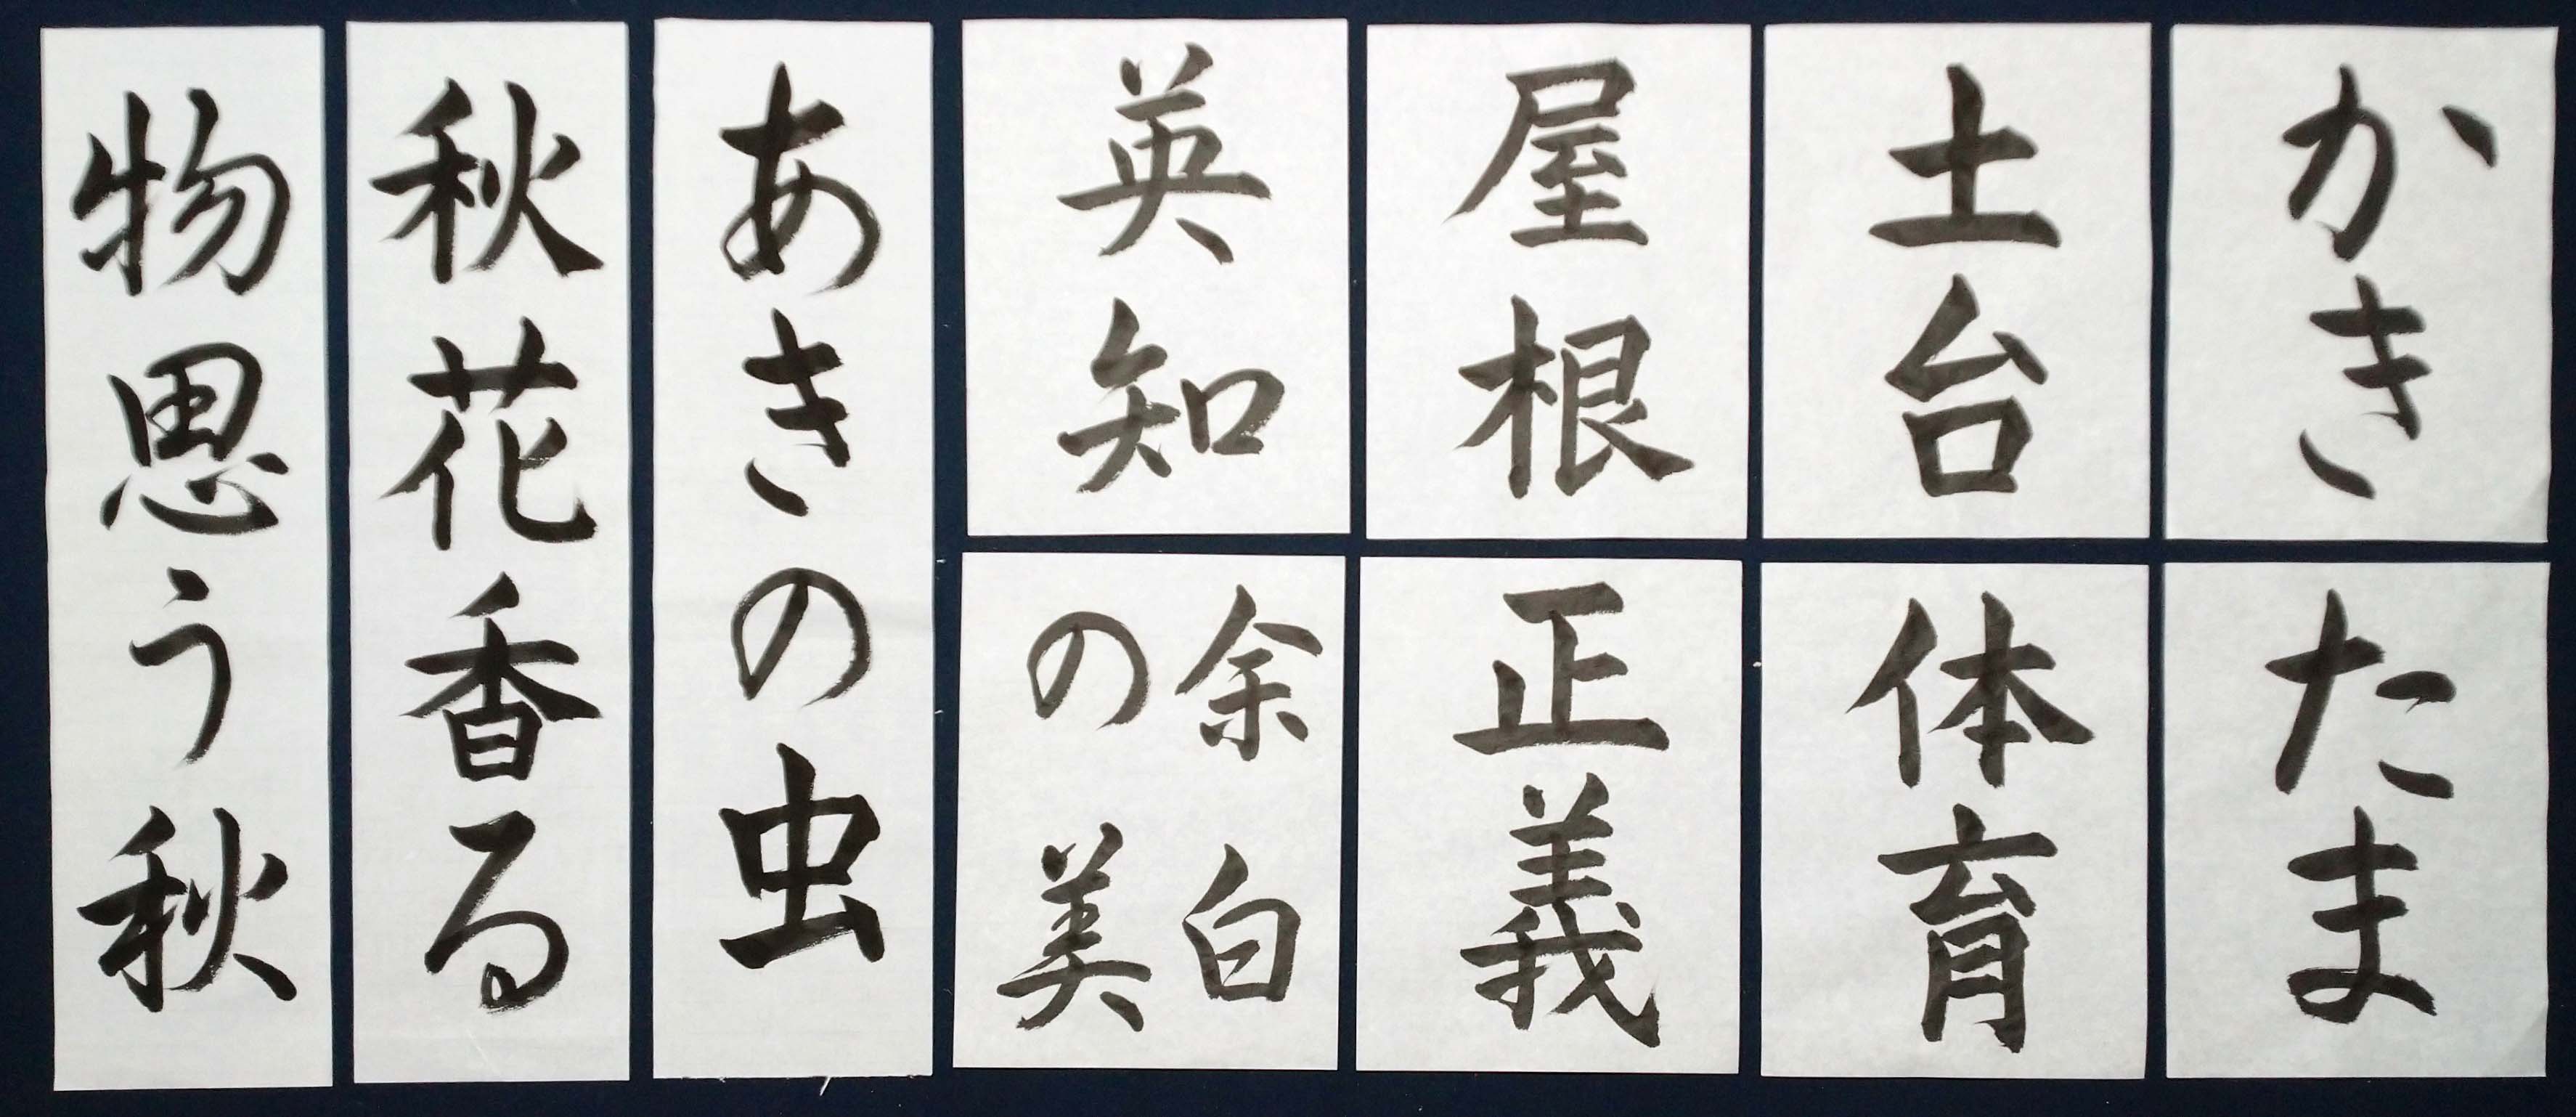 かき
たま
土台
体育
屋根
正義
英知
余白
の美
あきの虫
秋花香る
物思う秋